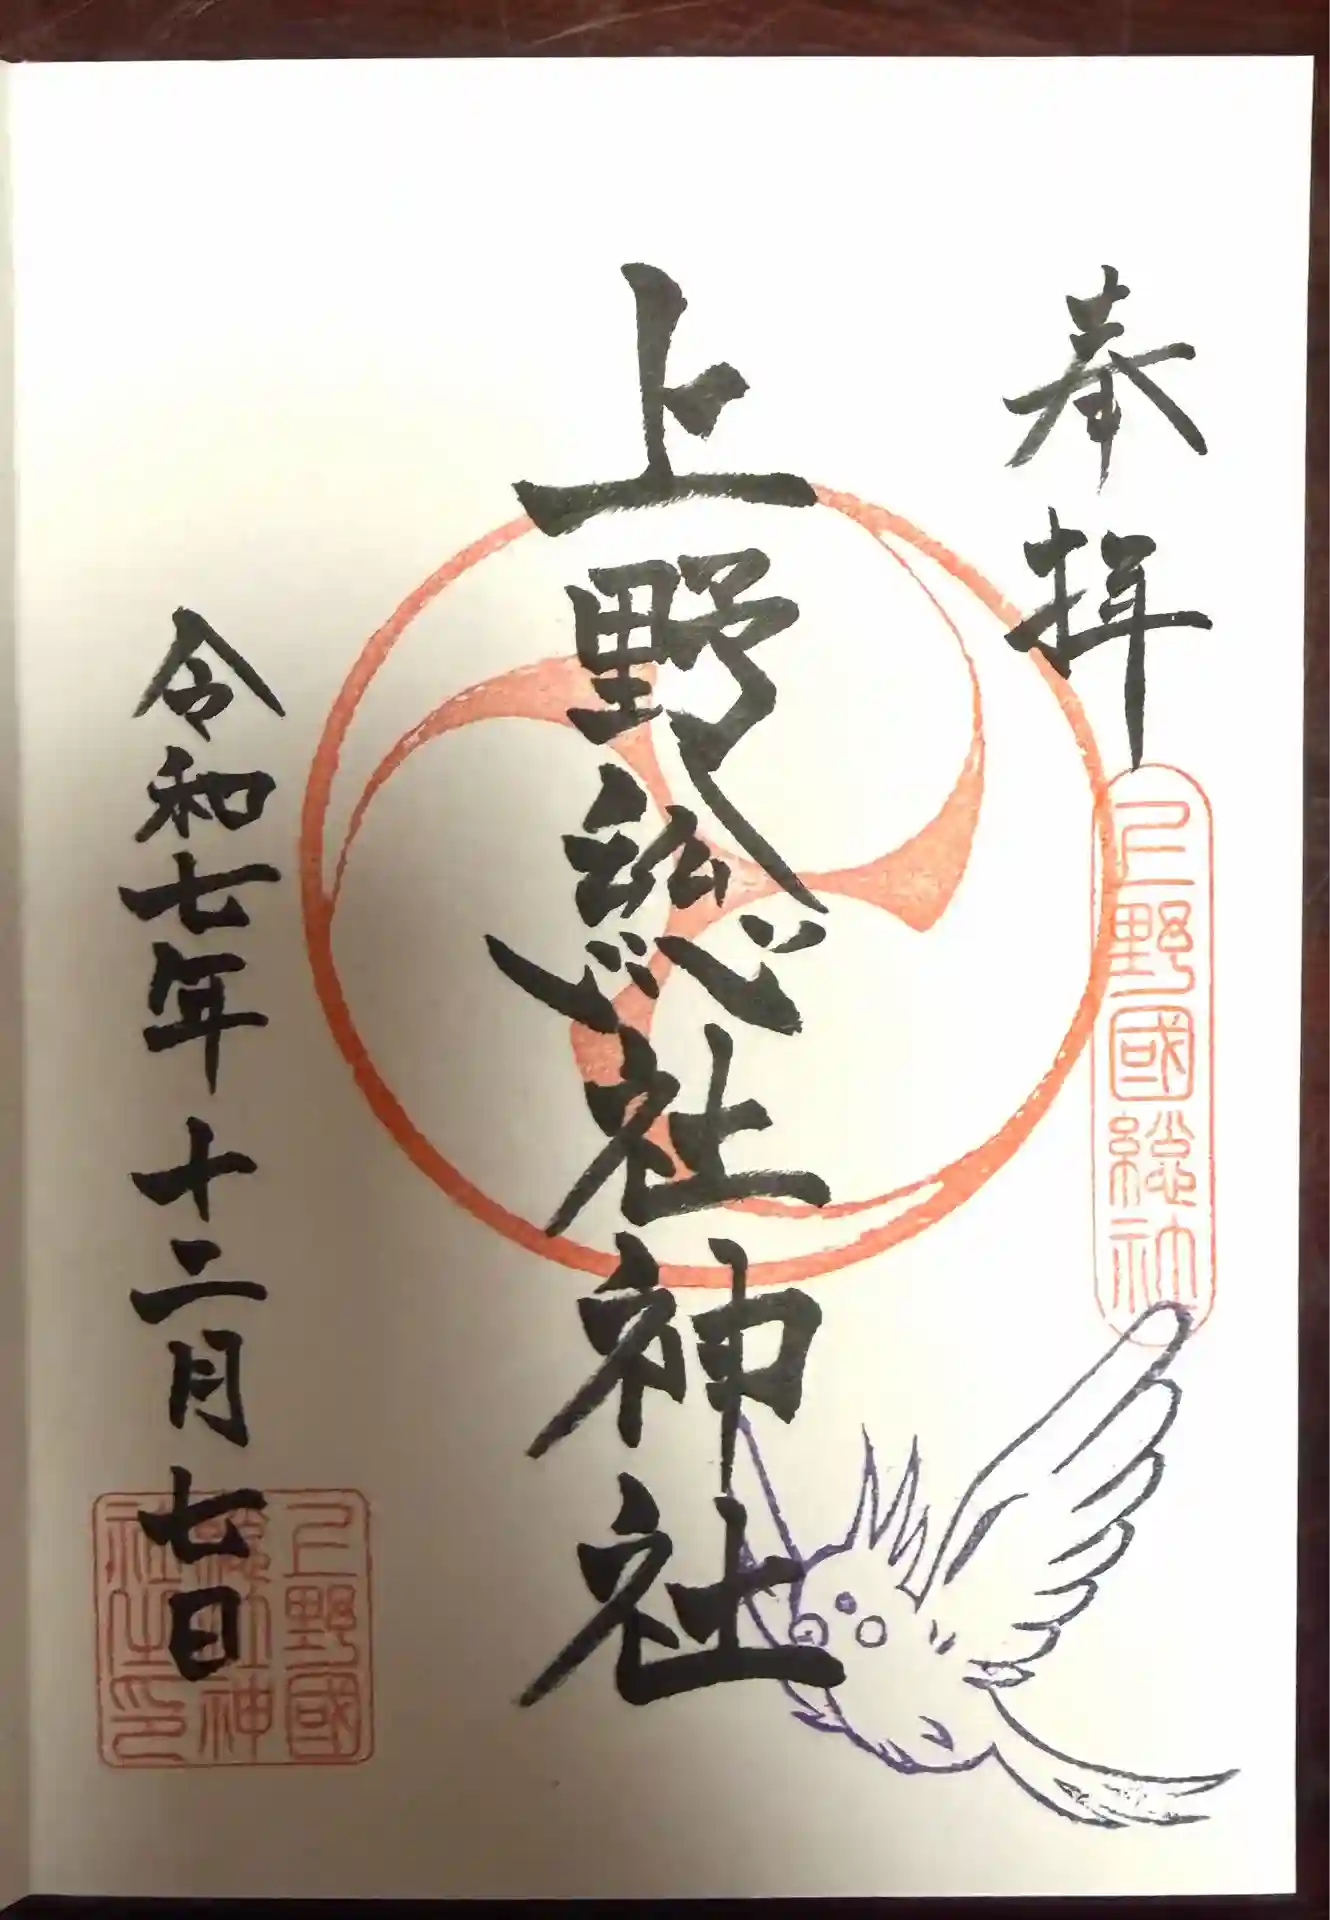 奉拝
上野國総社
上野総社神社
令和七年十二月七日
上野國
総社神
社之印